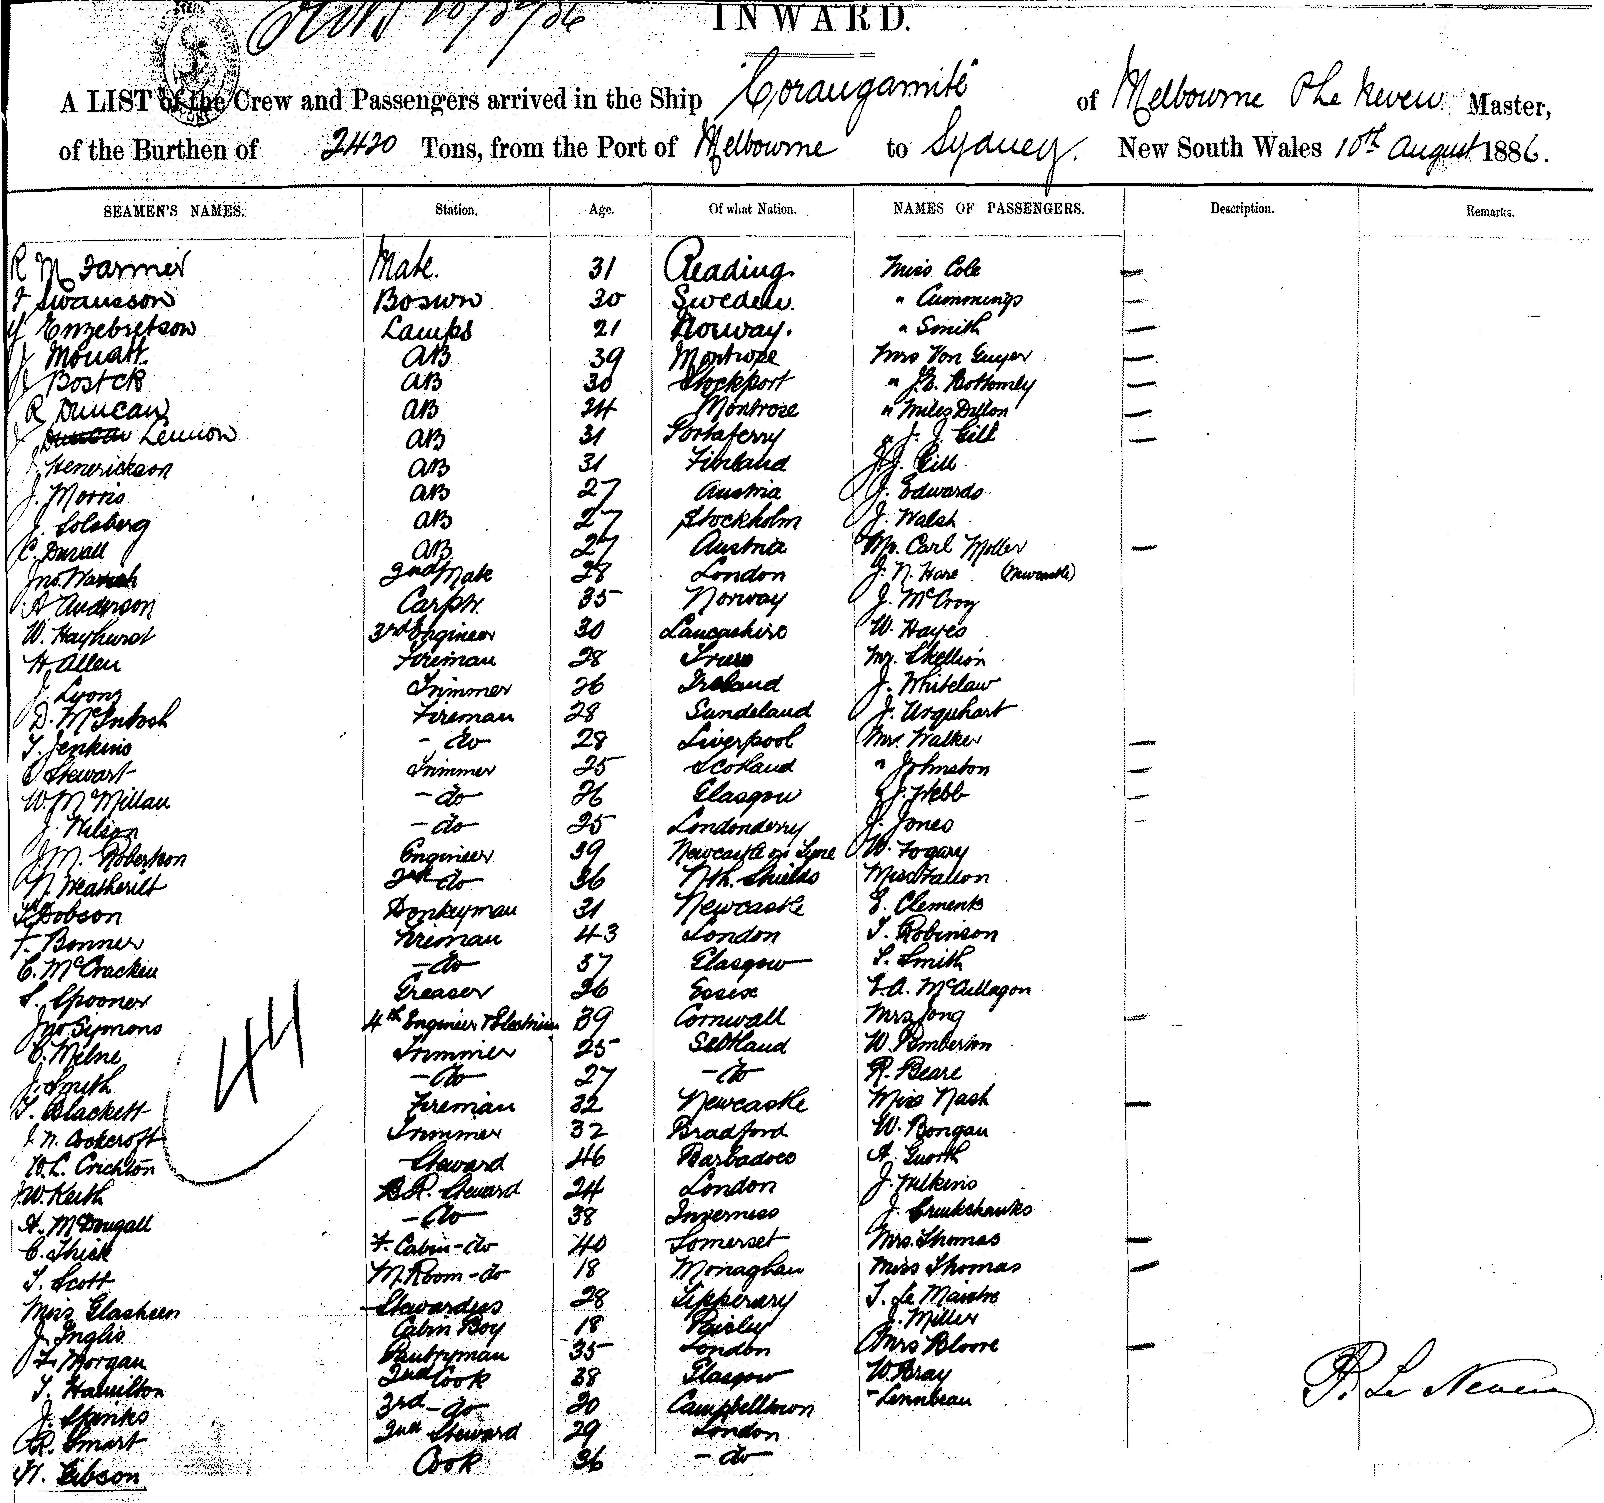 INWARD.
A LIST of the Crew and Passengers arrived in the Ship "Corangamite" of Melbourne P Le Neveu Master,
of the Burthen of 2420 Tons, from the Port of Melbourne to Sydney. New South Wales 10th August 1886.
SEAMEN'S NAMES. Station. Age. Of what Nation. NAMES OF PASSENGERS. Description. Remarks.
R M Farmer Mate. 31 Reading Miss Cole —
F Swansson Boswn 30 Sweden. " Cummings —
Enzebretson Lamps 21 Norway. " Smith —
J Mouatt. AB 39 Montrose Mrs Von Guyer —
J Bostck AB 30 Stockport " J.B. Bottomley —
R Duncan AB 24 Montrose " Miles Dillon —
J Duncan Lennon AB 31 Portaferry " J. J. Gill —
J. Henerickson AB 31 Finland J. J. Gill
J. Morris AB 27 Austria J. Edwards
J. Solsberg AB 27 Stockholm J. Walsh
C. Duvall AB 27 Austria Mr. Carl Moller —
Jno. 2nd Mate 28 London J. N. Hare (Newcastle)
A Anderson Carptr. 35 Norway J. McCroy
W. Hayhurst 3rd Engineer 30 Lancashire W. Hayes
H Allen Fireman 28 Truro Mr. Skellion
J. Lyons Trimmer 26 Ireland J. Whitelaw
D. McIntosh Fireman 28 Sundeland J. Urquhart
T. Jenkins - do 28 Liverpool Mr. Walker —
Stewart Trimmer 25 Scotland " Johnston —
W. McMillan - do 26 Glasgow J. Webb —
J. Nilson - do 25 Londonderry J. Jones —
J. M. Robertson Engineer 39 Newcastle on Tyne W. Fogary
N. Weatherilt 2nd do 36 Nth. Shields Miss Fallon
Dobson Donkeyman 31 Newcastle E. Clements
F. Bonner Fireman 43 London T. Robinson
C. McCracken - do 37 Glasgow S. Smith
S. Spooner Greaser 26 Essex McCullagon
Jno Symons 4th Engineer & Electrician 39 Cornwall Mrs Jong —
C. Milne Trimmer 25 Scotland W. Pemberton
J. Smith - do 27 - do R. Beare
T. Blackett Fireman 32 Newcastle Miss Nash —
J. N. Cockcroft Trimmer 32 Bradford W. Bongau
W. L. Crichton Steward 46 Barbadoes A.
J W Keith B.R. Steward 24 London J. Wilkins
A. McDougall - do 38 Inverness J. Cruikshanks
C. Thick F. Cabin - do 40 Somerset Mrs. Thomas —
T. Scott M. Room - do 18 Monaghan Miss Thomas —
Mrs Glasheen Stewardess 28 Tipperary T. Le Maistre
J. Inglis Cabin Boy 18 Paisley J. Miller
F. Morgan Pantryman 35 London Mrs Bloore —
T. Hamilton 2nd Cook 38 Glasgow W. Bray
J. Spinks 3rd - do 20 Campbelltown
R. Smart 2nd Steward 29 London
H. Gibson Cook 36 - do
44
P. Le Neveu